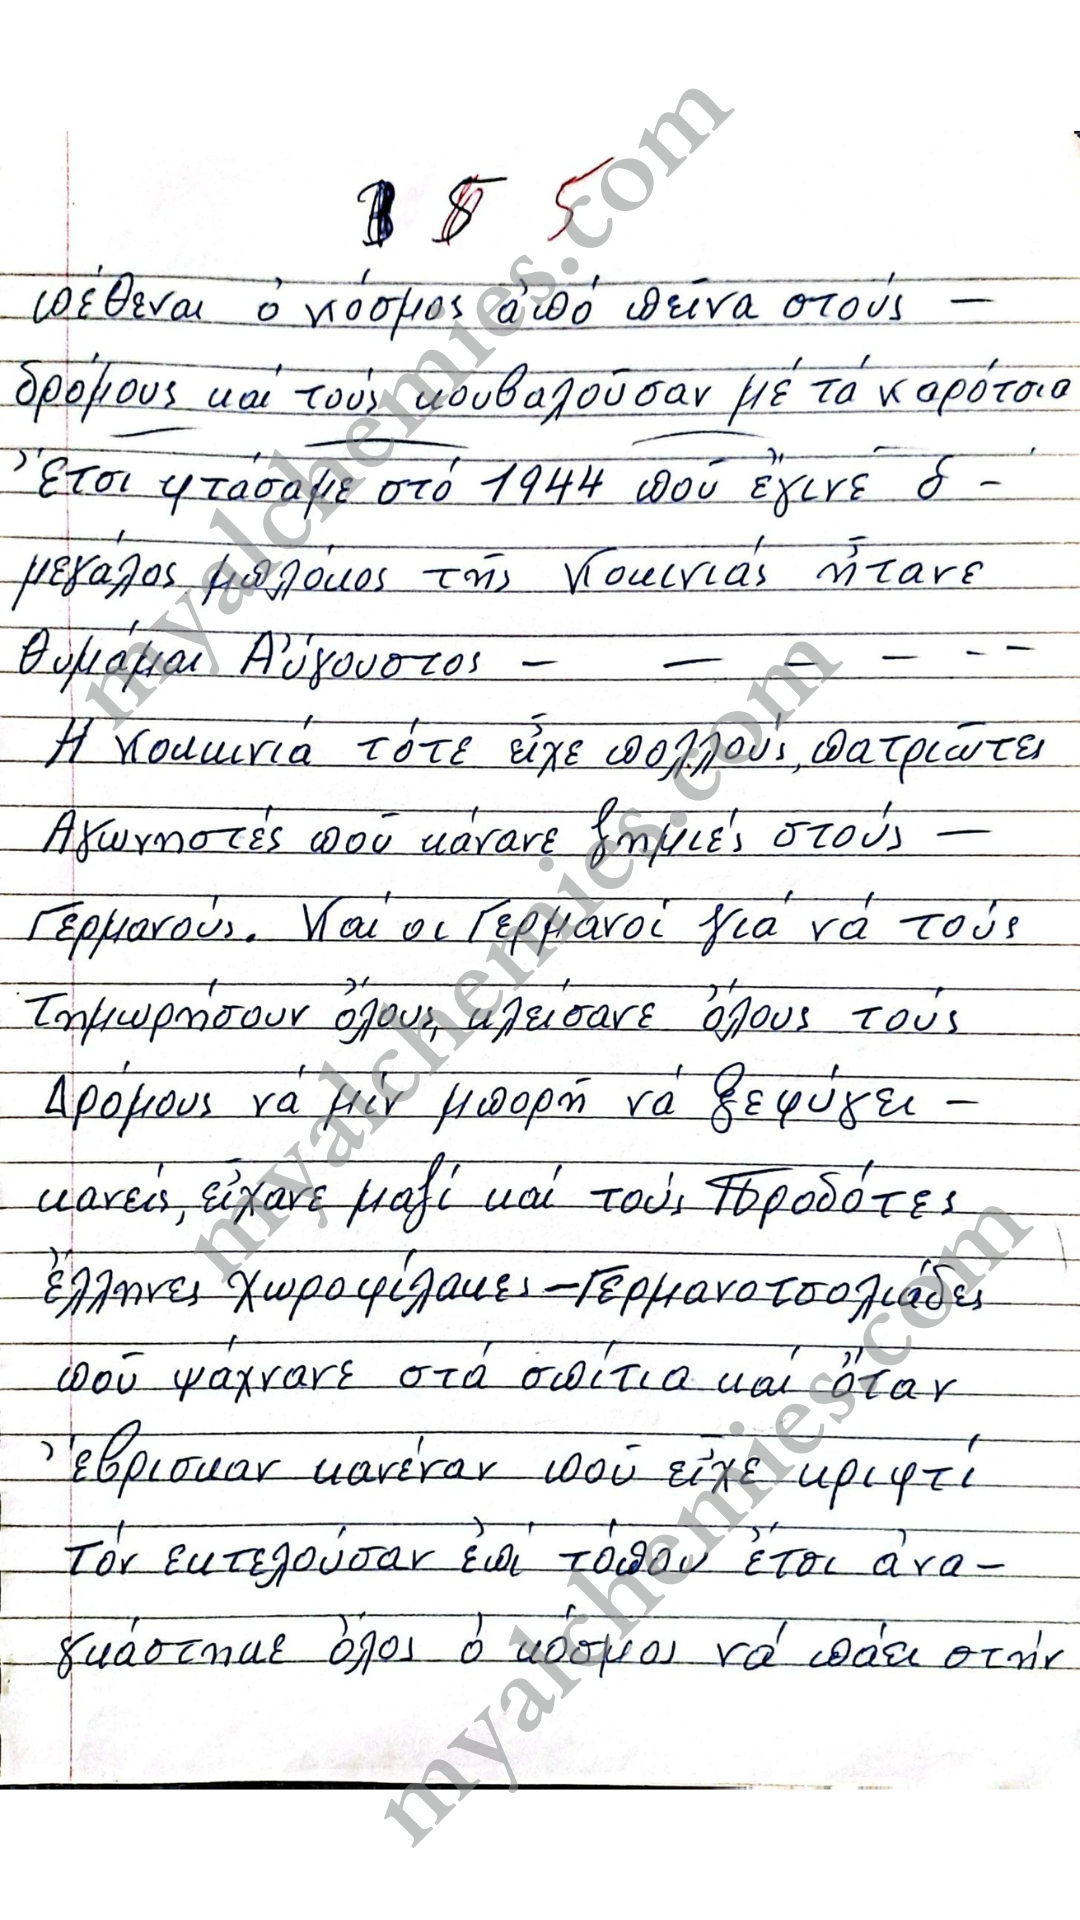 5 5
πέθεναι ὁ κόσμος ἀπό πεῖνα στούς —
δρόμους καί τούς κουβαλοῦσαν μέ τά καρότσια
Ἔτσι φτάσαμε στό 1944 ποῦ ἔγινε ὁ -
μεγάλος μπλόκος τῆς Κοκινιάς ἤτανε
θυμάμαι Αὔγουστος — — — — - -
Η Κοκκινιά τότε εἶχε πολλούς, πατριῶτες
Αγωνηστές ποῦ κάνανε ζημιές στούς —
Γερμανούς. Καί οι Γερμανοί γιά νά τούς
Τημωρήσουν ὅλους, κλείσανε ὅλους τούς
Δρόμους νά μίν μπορῆ νά ξεφύγει —
κανείς, εἴχανε μαζί καί τούς Προδότες
ἕλληνες χωροφίλακες — Γερμανοτσολιάδες
ποῦ ψάχνανε στά σπίτια καί ὅταν
ἔβρισκαν κανέναν ποῦ εἶχε κριφτί
Τόν εκτελούσαν ἐπί τόπου ἔτσι ἀνα-
γκάστηκε ὅλος ὁ κόσμος νά πάει στήν
myalchemies.com
myalchemies.com
myalchemies.com